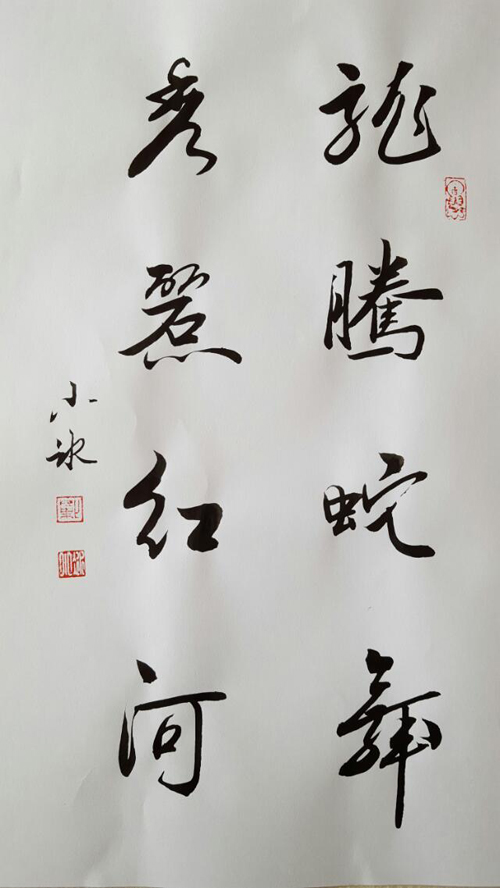 龍騰蛇舞
秀麗红河
小冰